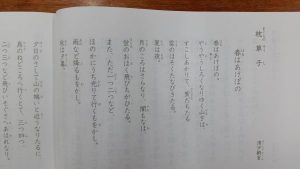 枕草子
春はあけぼの
清少納言
春はあけぼの。
やうやうしろくなりゆく山ぎは
すこしあかりて 紫だちたる
雲のほそくたなびきたる。
夏は夜。
月のころはさらなり 闇もなほ
蛍のおほく飛びちがひたる。
また、ただ一つ二つなど、
ほのかにうち光りて行くもをかし。
雨など降るもをかし。
秋は夕暮。
夕日のさして山の端いと近うなりたるに
烏のねどころへ行くとて 三つ四つ、
二つ三つなど飛びいそぐさへあはれなり。